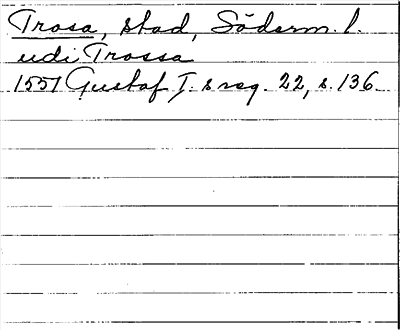 Trosa, stad, Söderm. l.
udi Trossa
1551 Gustaf I. s reg. 22, s. 136